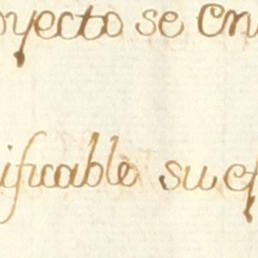 oyecto se en
ificable su ef